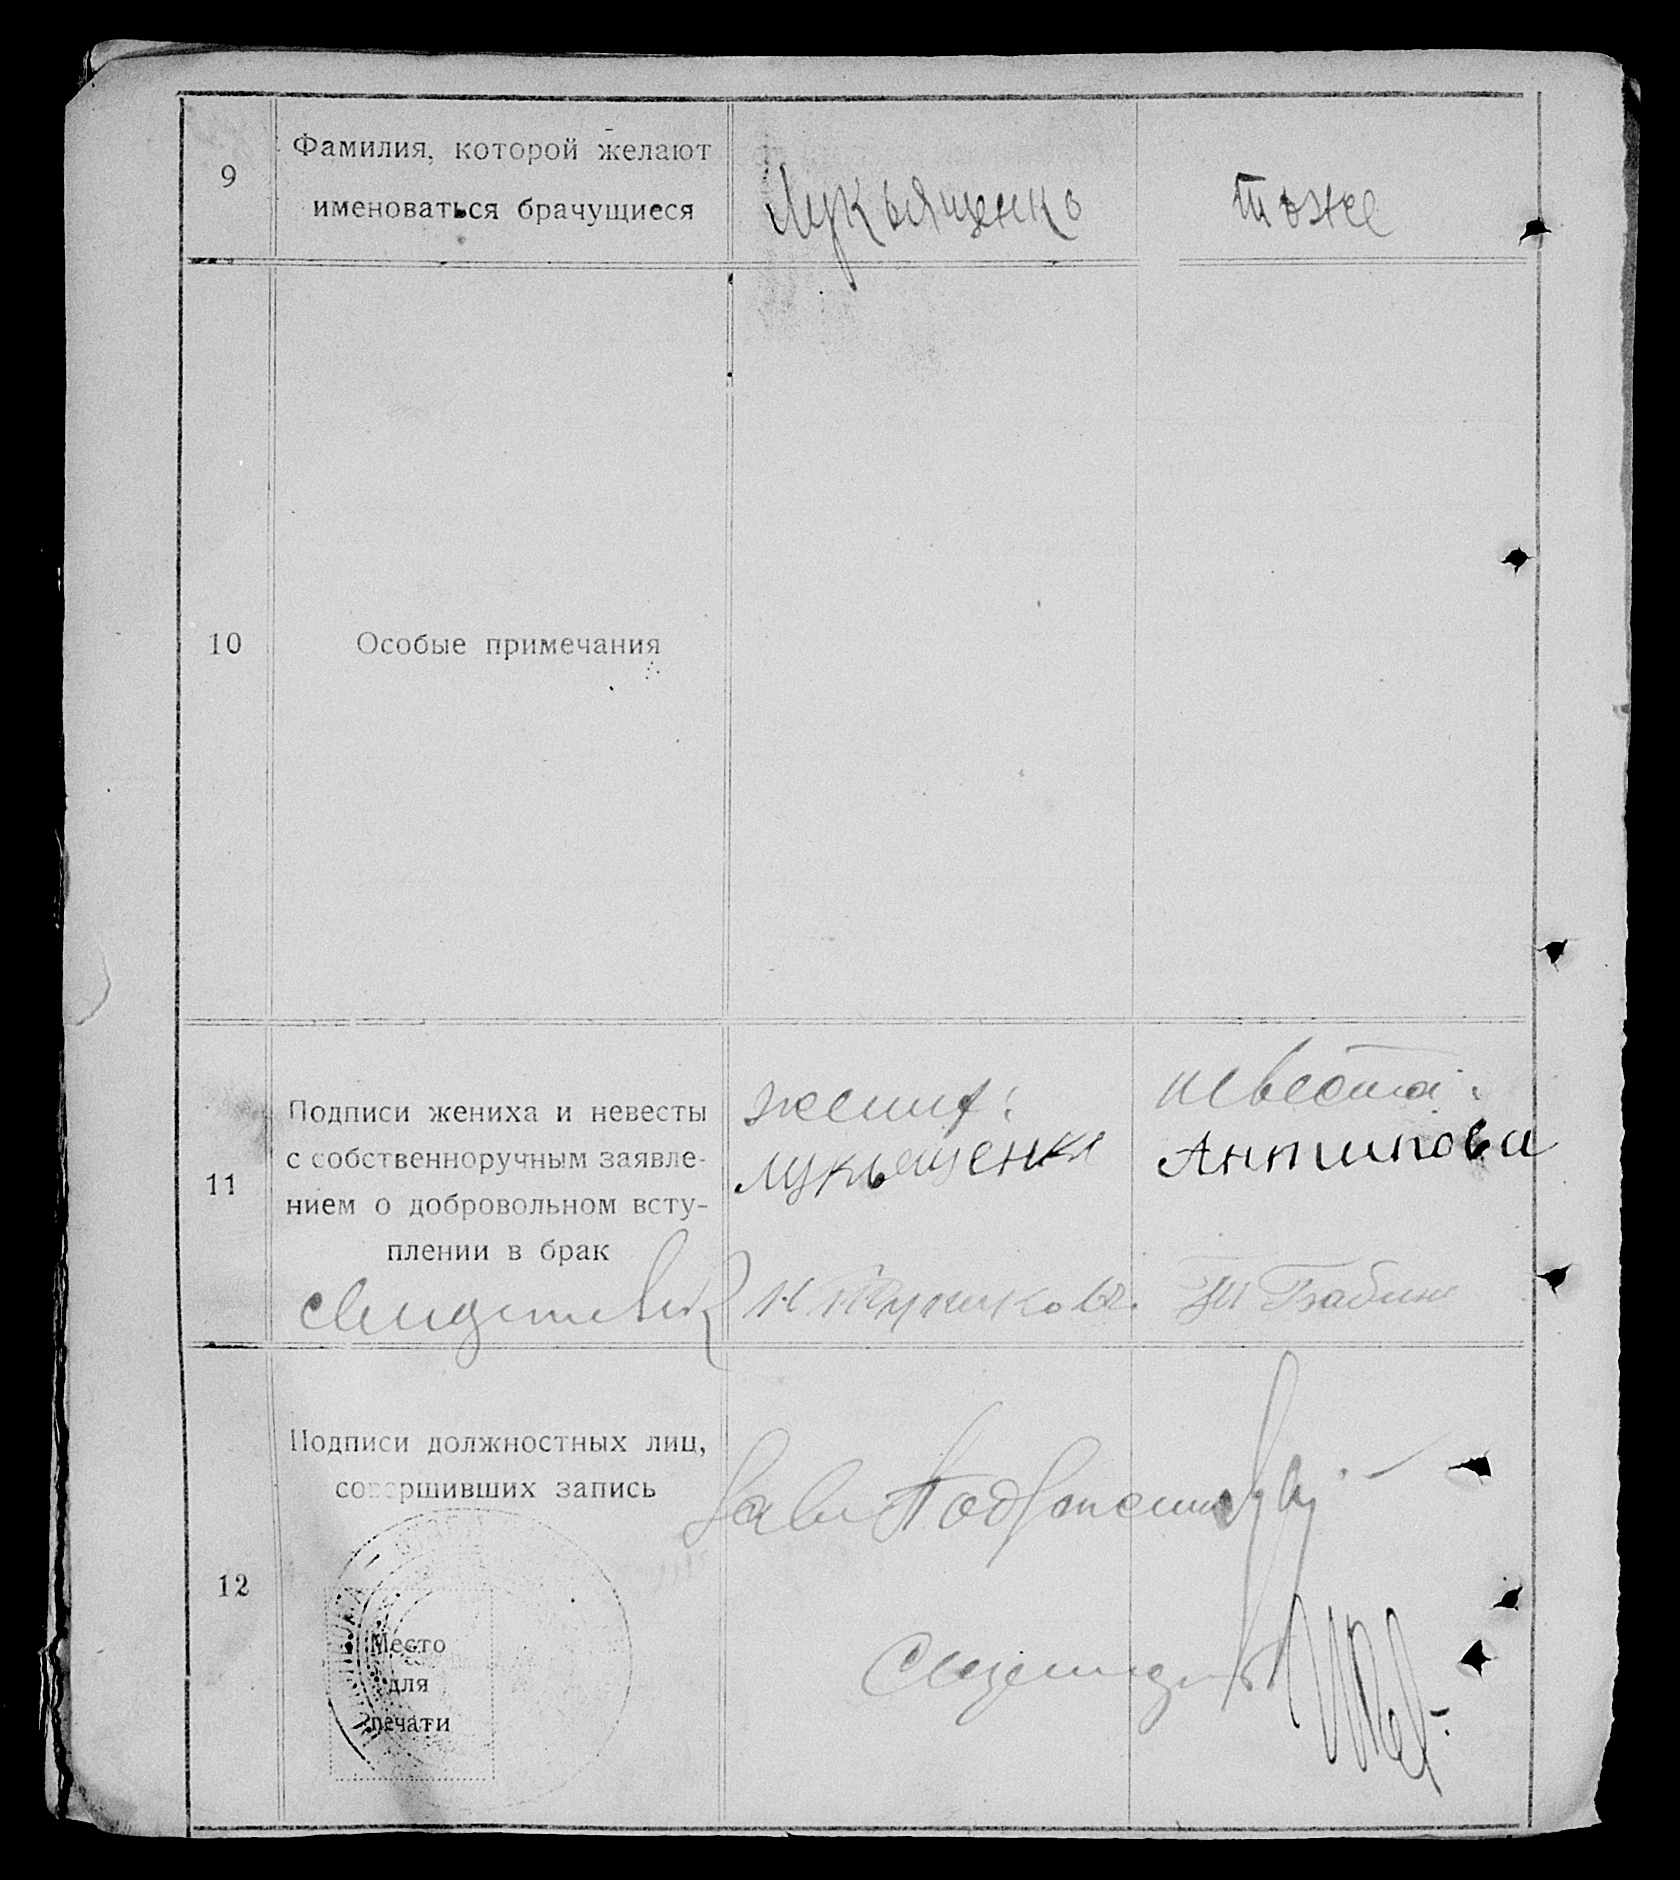 9
Фамилия, которой желают
именоваться брачущиеся
Лукьященко
тоже
10
Особые примечания
11
Подписи жениха и невесты
с собственноручным заявле-
нием о добровольном всту-
плении в брак
жених:
Лукьященко
невеста:
Антипова
Бабин
12
Подписи должностных лиц,
совершивших запись
Место
для
печати
Зав